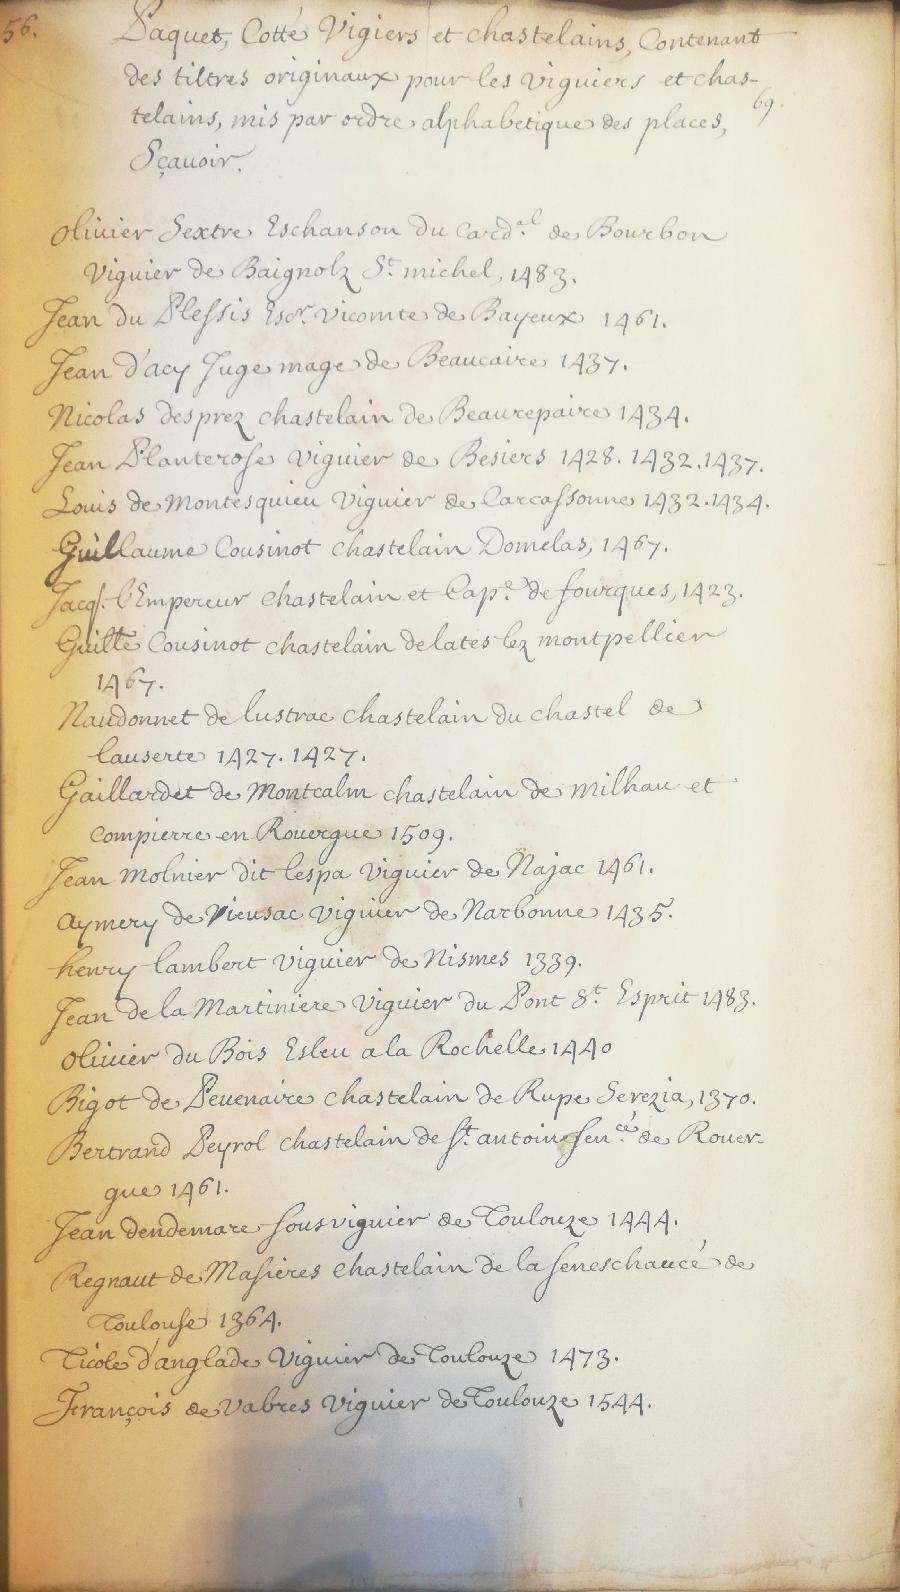 56.
Paquet, Cotté Vigiers et chastelains, Contenant
des tiltres originaux pour les viguiers et chas-
telains, mis par ordre alphabetique des places,
69.
Sçauoir.
Oliuier Sextre Eschanson du Card.al de Bourbon
Viguier de Baignolz St. michel, 1483.
Jean du Plessis Escr. vicomte de Bayeux 1461.
Jean d'acy Juge mage de Beaucaire 1437.
Nicolas desprez chastelain de Beaurepaire 1434.
Jean Planterose viguier de Besiers 1428. 1432. 1437.
Louis de Montesquieu Viguier de Carcassonne 1432. 1434.
Guillaume Cousinot chastelain Domelas, 1467.
Jacq. l'Empereur chastelain et Cap.e de fourques, 1423.
Guille Cousinot chastelain delates lez montpellier
1467.
Naudonnet de lustrac chastelain du chastel de
lauserte 1427. 1427.
Gaillardet de Montcalm chastelain de milhau et
compierre en Rouergue 1509.
Jean molnier dit lespa viguier de Najac 1461.
aymery de vieusac viguier de Narbonne 1435.
henry lambert viguier de Nismes 1339.
Jean dela Martiniere Viguier du Pont St. Esprit 1483.
Oliuier du Bois Esleu ala Rochelle 1440
Bigot de Peuenaire chastelain de Rupe Serezia, 1370.
Bertrand Peyrol chastelain de St. antoin sen.cé de Rouer-
gue 1461.
Jean dendemare sousviguier de Toulouze 1444.
Regnaut de Masieres chastelain de la seneschaucé de
Toulouse 1364.
Ticole d'anglade Viguier de Toulouze 1473.
François de Vabres viguier de Toulouze 1544.